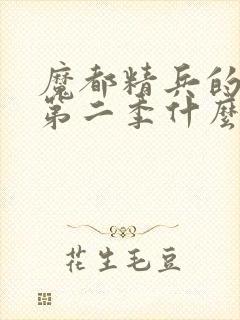 魔都精兵的
第二季什麼
花生毛豆